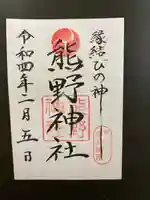 縁結びの神
熊野神社
令和四年一月五日